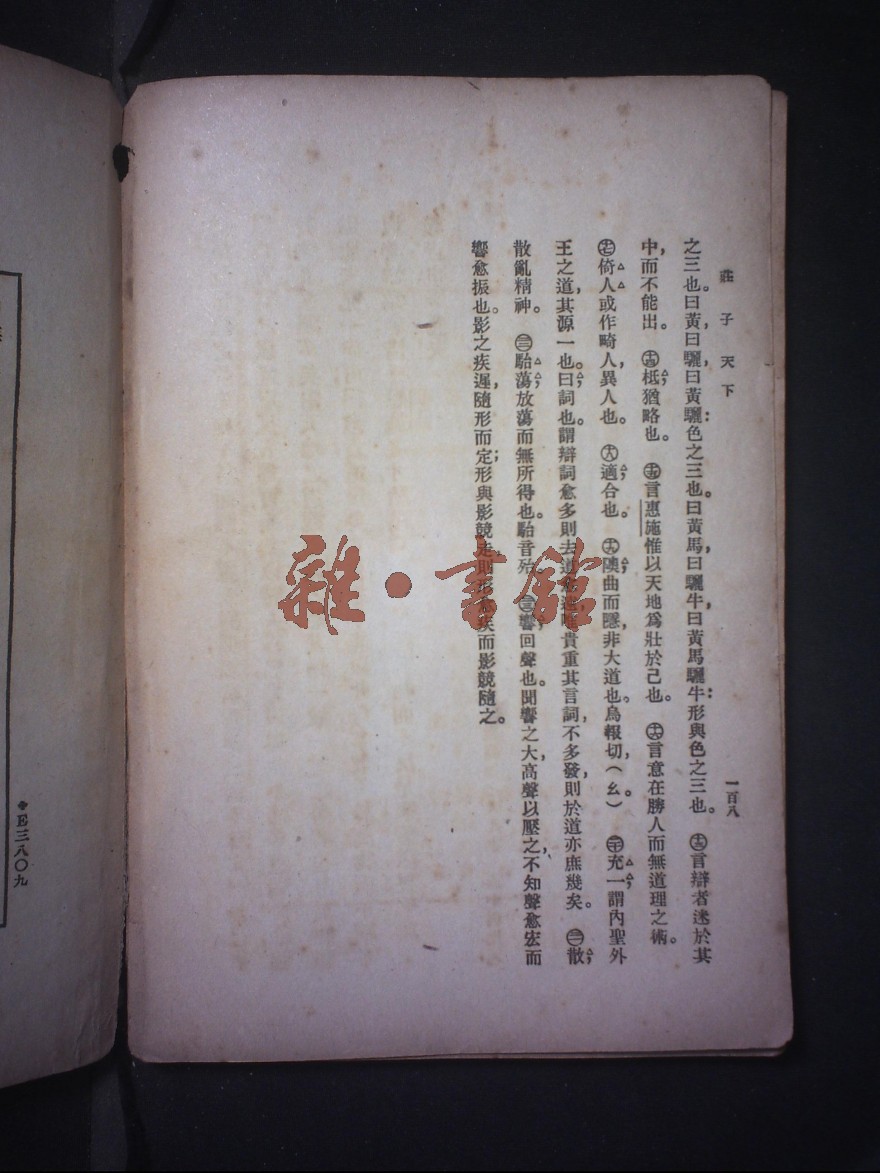 莊子天下
一百八
之三也。曰黃,曰驪,曰黃驪:色之三也。曰黃馬,曰驪牛,曰黃馬驪牛:形與色之三也。㊂言辯者迷於其
中,而不能出。 柢,猶略也。 言惠施惟以天地爲壯於己也。 言意在勝人而無道理之術。
倚人或作畸人,異人也。 適,合也。 隩,曲而隱,非大道也。烏報切,(ㄠ。) 充一,謂內聖外
王之道,其源一也。曰,詞也。謂辯詞愈多則去道 貴重其言詞,不多發,則於道亦庶幾矣。 散,
散亂精神。 駘蕩,放蕩而無所得也。駘音殆。 響,回聲也。聞響之大,高聲以壓之,不知聲愈宏而
響愈振也。影之疾遲,隨形而定;形與影競走,則形 疾而影競隨之。
E三八〇九
雜·書館